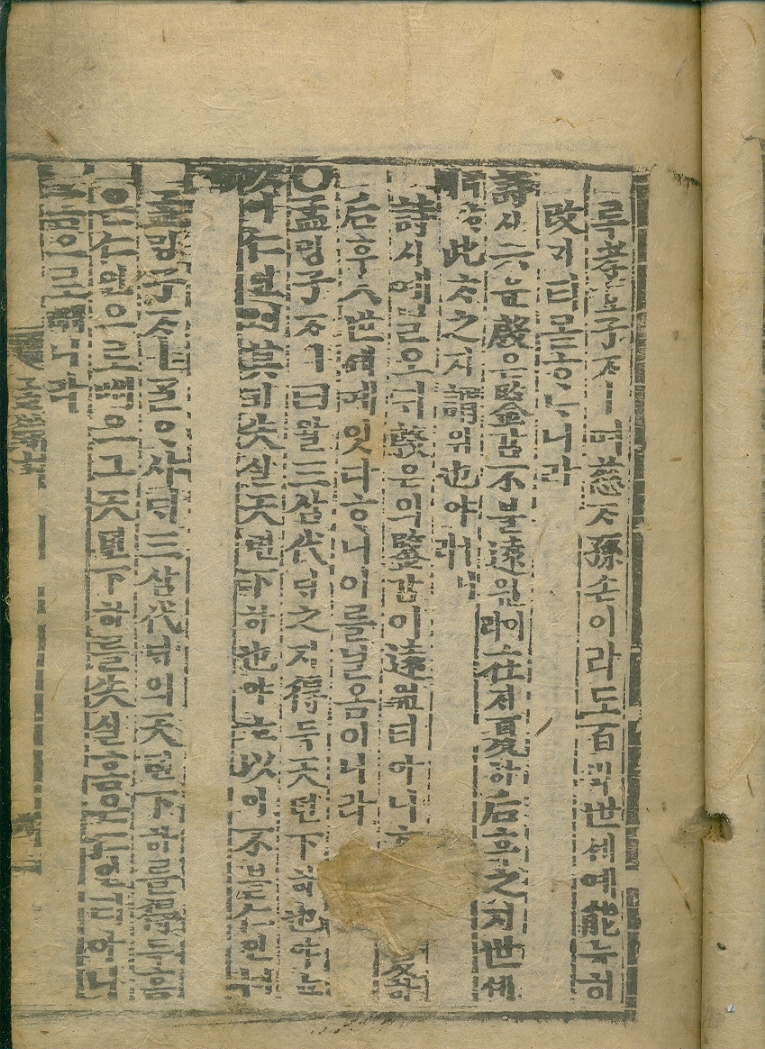 루孝효子ᄌᆞㅣ며慈ᄌᆞ孫손이라도百ᄇᆡᆨ世셰예能능히
改ᄀᆡ티몯ᄒᆞᄂᆞ니라
詩시云운殷은鑒감不블遠원이라在ᄌᆡ夏하后후之지世셰
ᄒᆞ此ᄎᆞ之지謂위也야ㅣ니
詩시예닐오ᄃᆡ殷은의鑒감이遠원티아니ᄒᆞ 夏하
后후ㅅ世셰예잇다ᄒᆞ니이를닐옴이니라
○孟ᄆᆡᆼ子ᄌᆞㅣ曰왈三삼代ᄃᆡ之지得득天텬下하也야ᄂᆞᆫ
仁인이오其기失실天텬下하也야ᄂᆞᆫ以이不블仁인이
孟ᄆᆡᆼ子ᄌᆞㅣᄀᆞᆯᄋᆞ샤ᄃᆡ三삼代ᄃᆡ의天텬下하를得득홈
은仁인으로ᄡᅥ오그天텬下하를失실홈은仁인티아니
홈으로ᄡᅥ니라
孟諺七